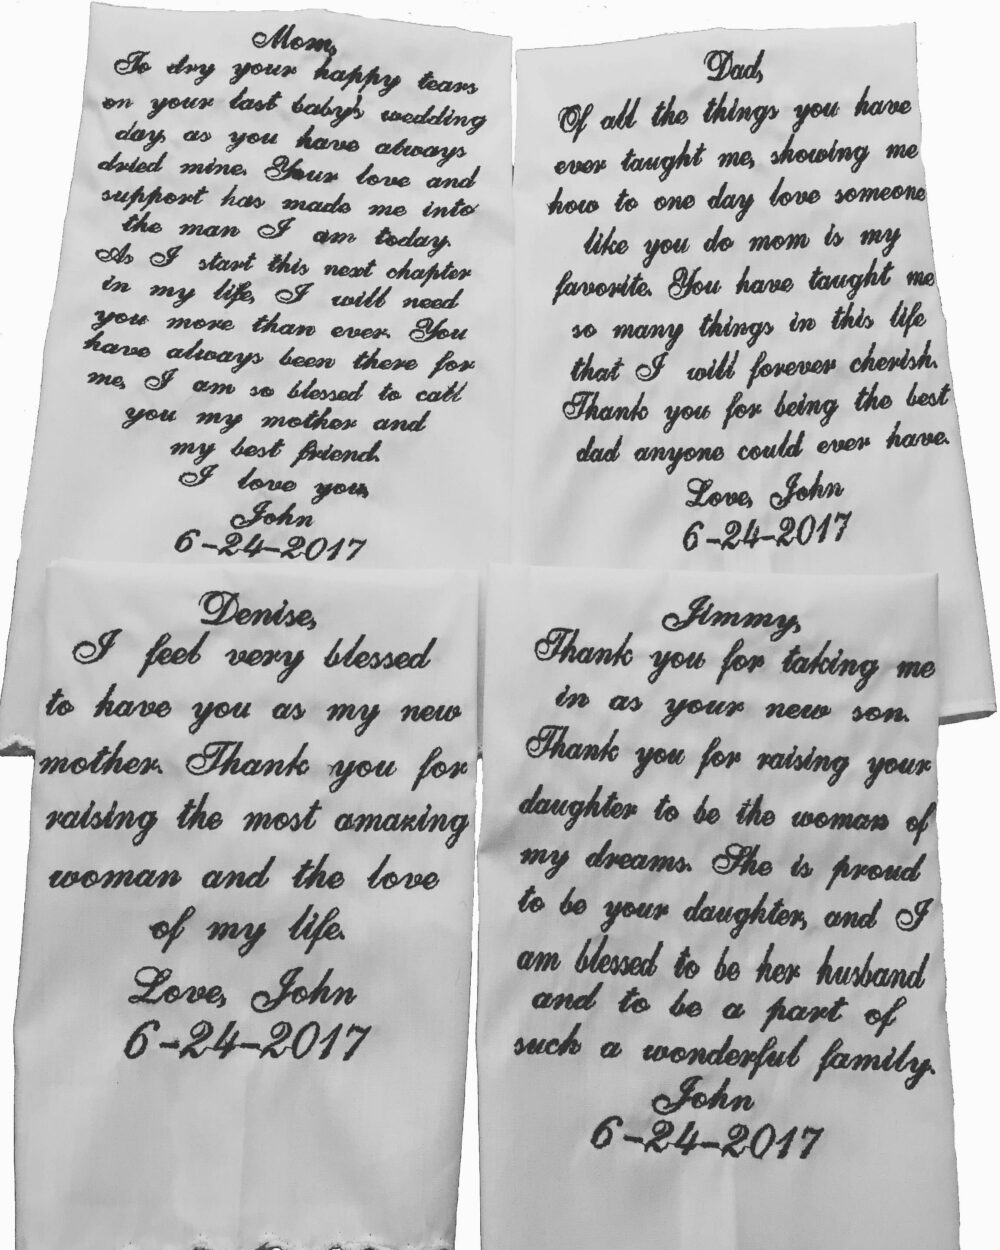 Mom,
To dry your happy tears
on your last baby's wedding
day, as you have always
dried mine. Your love and
support has made me into
the man I am today.
As I start this next chapter
in my life, I will need
you more than ever. You
have always been there for
me, I am so blessed to call
you my mother and
my best friend.
I love you,
John
6-24-2017
Dad,
Of all the things you have
ever taught me, showing me
how to one day love someone
like you do mom is my
favorite. You have taught me
so many things in this life
that I will forever cherish.
Thank you for being the best
dad anyone could ever have.
Love, John
6-24-2017
Denise,
I feel very blessed
to have you as my new
mother. Thank you for
raising the most amazing
woman and the love
of my life.
Love, John
6-24-2017
Jimmy,
Thank you for taking me
in as your new son.
Thank you for raising your
daughter to be the woman of
my dreams. She is proud
to be your daughter, and I
am blessed to be her husband
and to be a part of
such a wonderful family.
John
6-24-2017